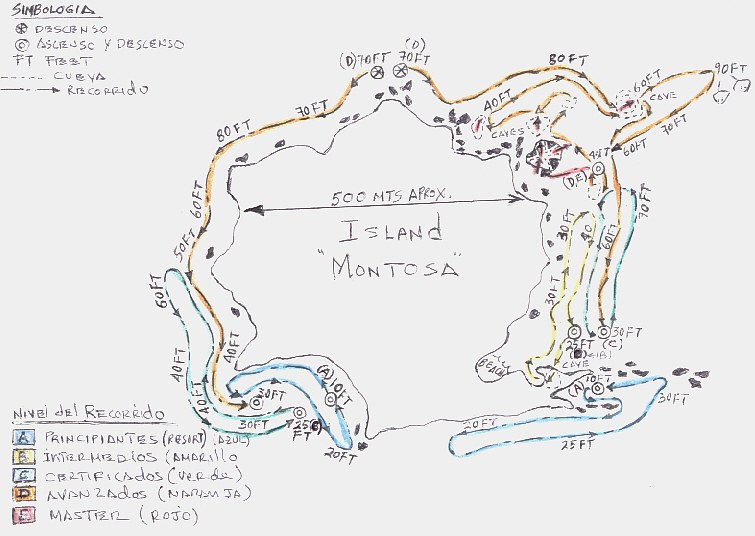 SIMBOLOGIA
DESCENSO
ASCENSO Y DESCENSO
FT FEET
CUEVA
RECORRIDO
(D) 70FT
(D)
70FT
80FT
70FT
80FT
60FT
50FT
40FT
60FT
40FT
40FT
30FT
20FT
25
FT
(A) 10FT
20FT
40FT
CAVES
60FT
CAVE
90FT
70FT
60FT
(D,E)
70FT
60FT
30FT
40
30FT
500 MTS APROX.
ISLAND
"MONTOSA"
30FT
25FT (C)
CAVE
BEACH
(A) 10FT
30FT
20FT
25FT
NIVEL DEL RECORRIDO
A PRINCIPIANTES (RESORT) (AZUL)
B INTERMEDIOS (AMARILLO
C CERTIFICADOS (VERDE)
D AVANZADOS (NARANJA)
E MASTER (ROJO)